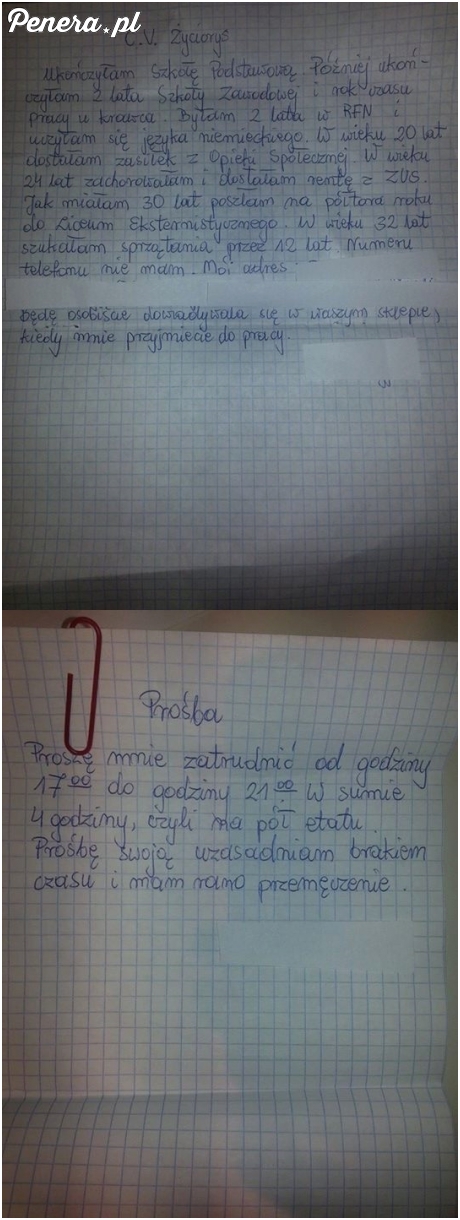 Penera.pl
C.V. Życiorys
Ukończyłam Szkołę Podstawową. Później ukoń-
czyłam 2 lata Szkoły Zawodowej i rok czasu
pracy u krawca. Byłam 2 lata w RFN i
uczyłam się języka niemieckiego. W wieku 20 lat
dostałam zasiłek z Opieki Społecznej. W wieku
24 lat zachorowałam i dostałam rentę z ZUS.
Jak miałam 30 lat poszłam na półtora roku
do Liceum Eksternistycznego. W wieku 32 lat
szukałam sprzątania przez 12 lat. Numeru
telefonu nie mam. Mój adres:
Będę osobiście dowiadywała się w waszym sklepie,
kiedy mnie przyjmiecie do pracy.
Prośba
Proszę mnie zatrudnić od godziny
17⁰⁰ do godziny 21⁰⁰ w sumie
4 godziny, czyli na pół etatu.
Prośbę swoją uzasadniam brakiem
czasu i mam rano przemęczenie.